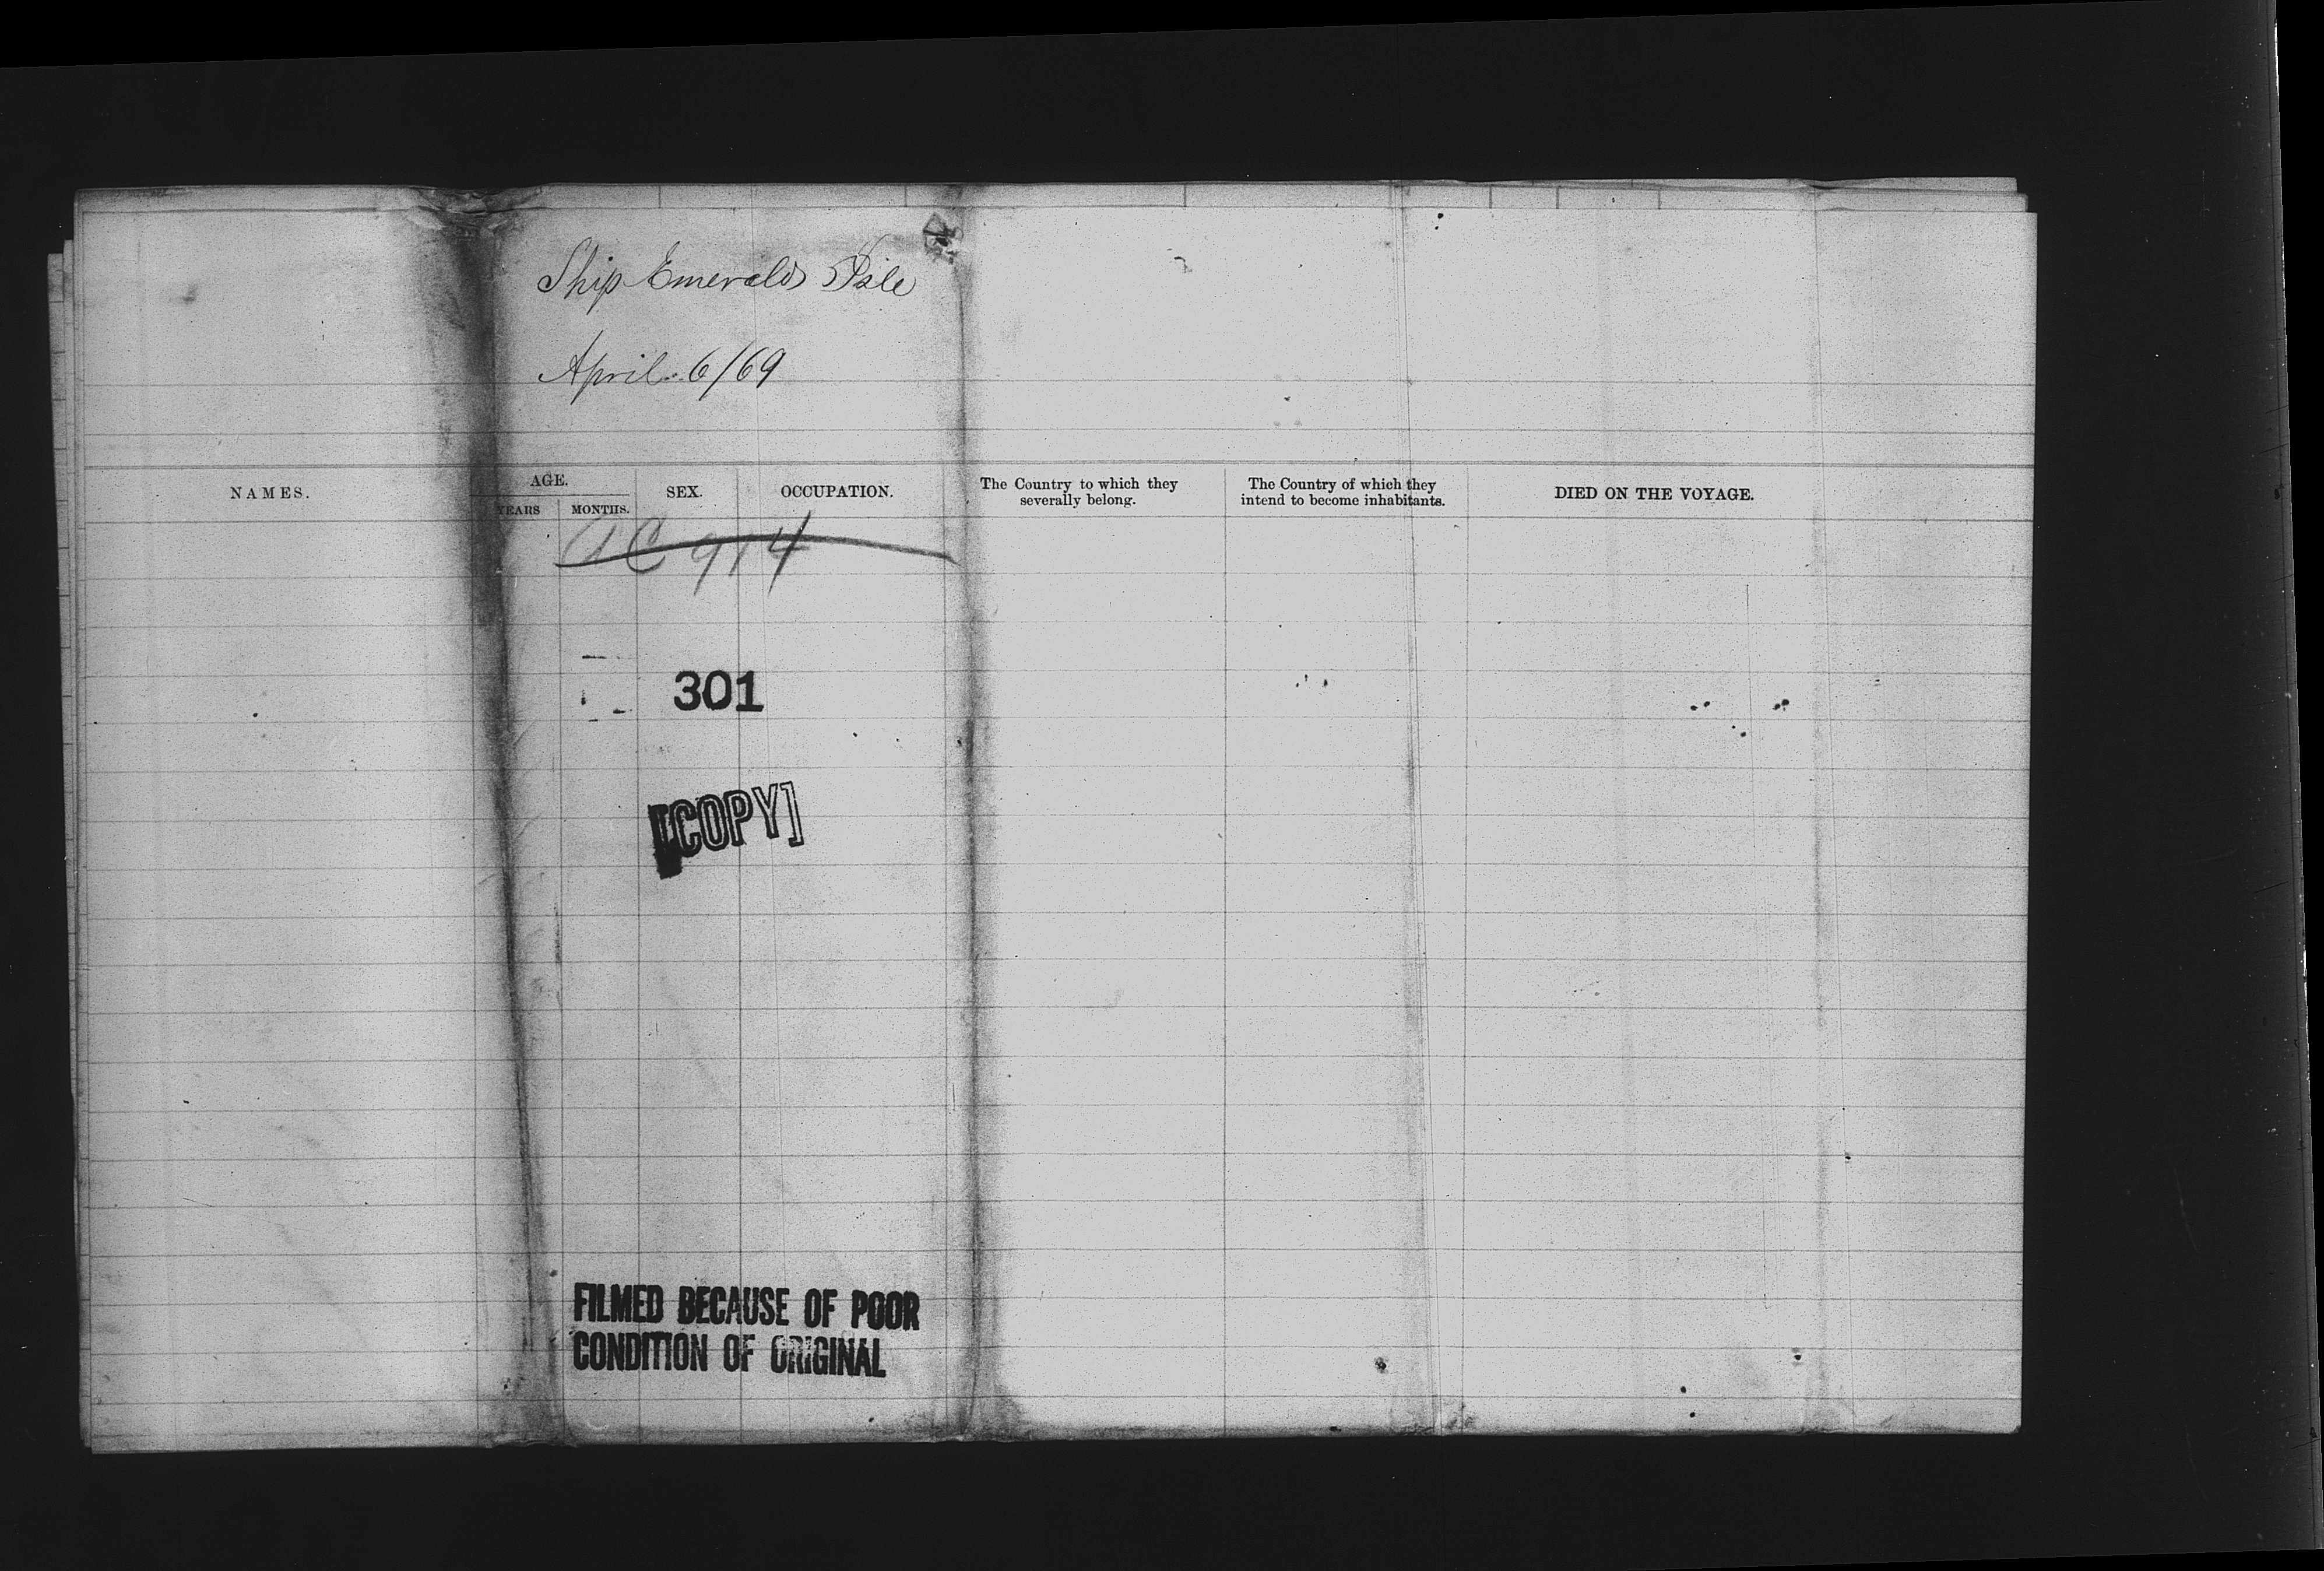 Ship Emerald Isle
April 6/69
NAMES.
AGE.
YEARS
MONTHS.
SEX.
OCCUPATION.
The Country to which they
severally belong.
The Country of which they
intend to become inhabitants.
DIED ON THE VOYAGE.
914
301
[COPY]
FILMED BECAUSE OF POOR
CONDITION OF ORIGINAL